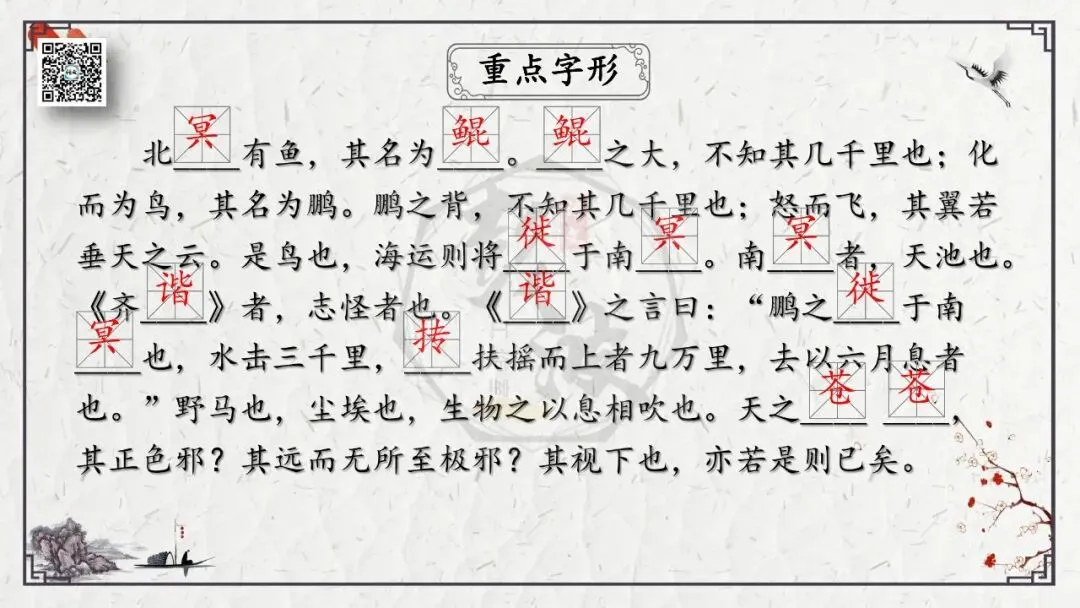 重点字形
北冥有鱼，其名为鲲。鲲之大，不知其几千里也；化
而为鸟，其名为鹏。鹏之背，不知其几千里也；怒而飞，其翼若
垂天之云。是鸟也，海运则将徙于南冥。南冥者，天池也。
《齐谐》者，志怪者也。《谐》之言曰：“鹏之徙于南
冥也，水击三千里，抟扶摇而上者九万里，去以六月息者
也。”野马也，尘埃也，生物之以息相吹也。天之苍苍，
其正色邪？其远而无所至极邪？其视下也，亦若是则已矣。